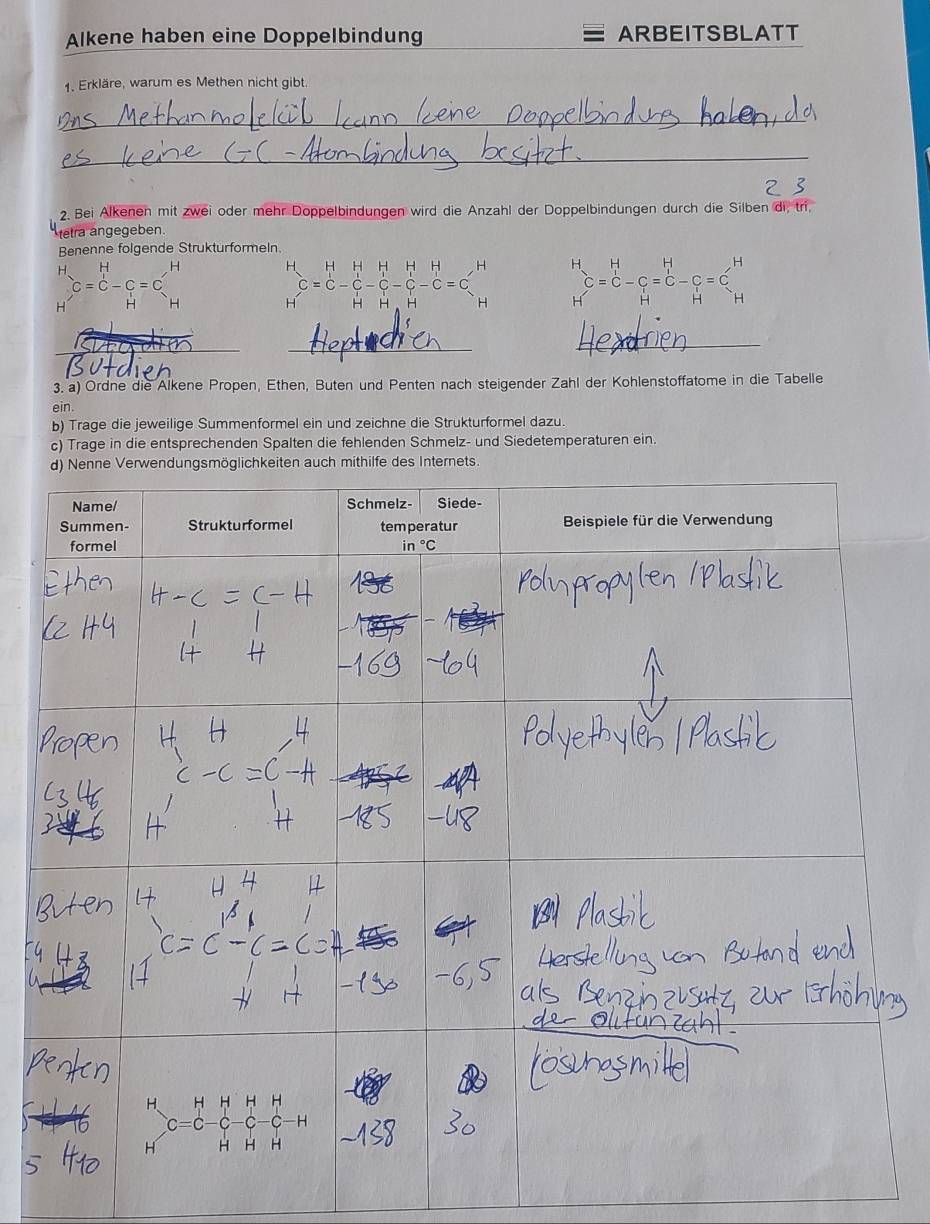 Alkene haben eine Doppelbindung
ARBEITSBLATT
1. Erkläre, warum es Methen nicht gibt.
Das Methanmolekül kann keine Doppelbindung haben, da
es keine C-C-Atombindung besitzt.
2 3
2. Bei Alkenen mit zwei oder mehr Doppelbindungen wird die Anzahl der Doppelbindungen durch die Silben di, tri,
4
tetra angegeben.
Benenne folgende Strukturformeln.
H H H H H H H H H H H H H H
C = C - C = C C = C - C - C - C - C = C C = C - C = C - C = C
H H H H H H H H H H H H
Butdien
Heptdien
Hexdrien
3. a) Ordne die Alkene Propen, Ethen, Buten und Penten nach steigender Zahl der Kohlenstoffatome in die Tabelle
ein.
b) Trage die jeweilige Summenformel ein und zeichne die Strukturformel dazu.
c) Trage in die entsprechenden Spalten die fehlenden Schmelz- und Siedetemperaturen ein.
d) Nenne Verwendungsmöglichkeiten auch mithilfe des Internets.
Name/
Summen-
formel
Strukturformel
Schmelz- Siede-
temperatur
in °C
Beispiele für die Verwendung
Ethen
C2 H4
H - C = C - H
H H
-169 -104
Polypropylen / Plastik
Propen
C3 H6
H H H
C - C = C - H
H H
-185 -48
Polyethylen / Plastik
Buten
C4 H8
H H H H
C = C - C = C = H
H H H
-190 -6,5
Plastik
Herstellung von Butand und
als Benzinzusatz, zur Erhöhung
der Oktanzahl.
Penten
5 H10
H H H H H
C=C-C-C-C-H
H H H H
-138 30
Lösungsmittel